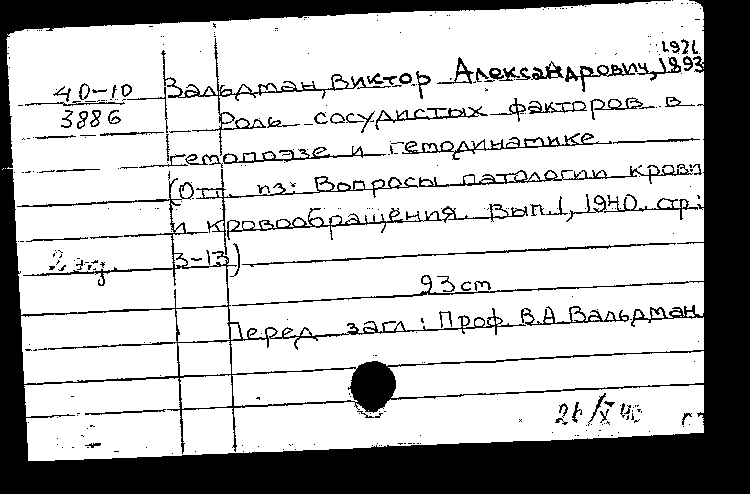 40-10 Вальдман, Виктор Александрович, 1893
3886 Роль сосудистых факторов в
гемопоэзе и гемодинамике
(Отт. из: Вопросы патологии крови
и кровообращения. Вып. 1, 1940. стр:
2 экз. 3-13).
23 cm
Перед загл: Проф. В.А Вальдман
26/X 40